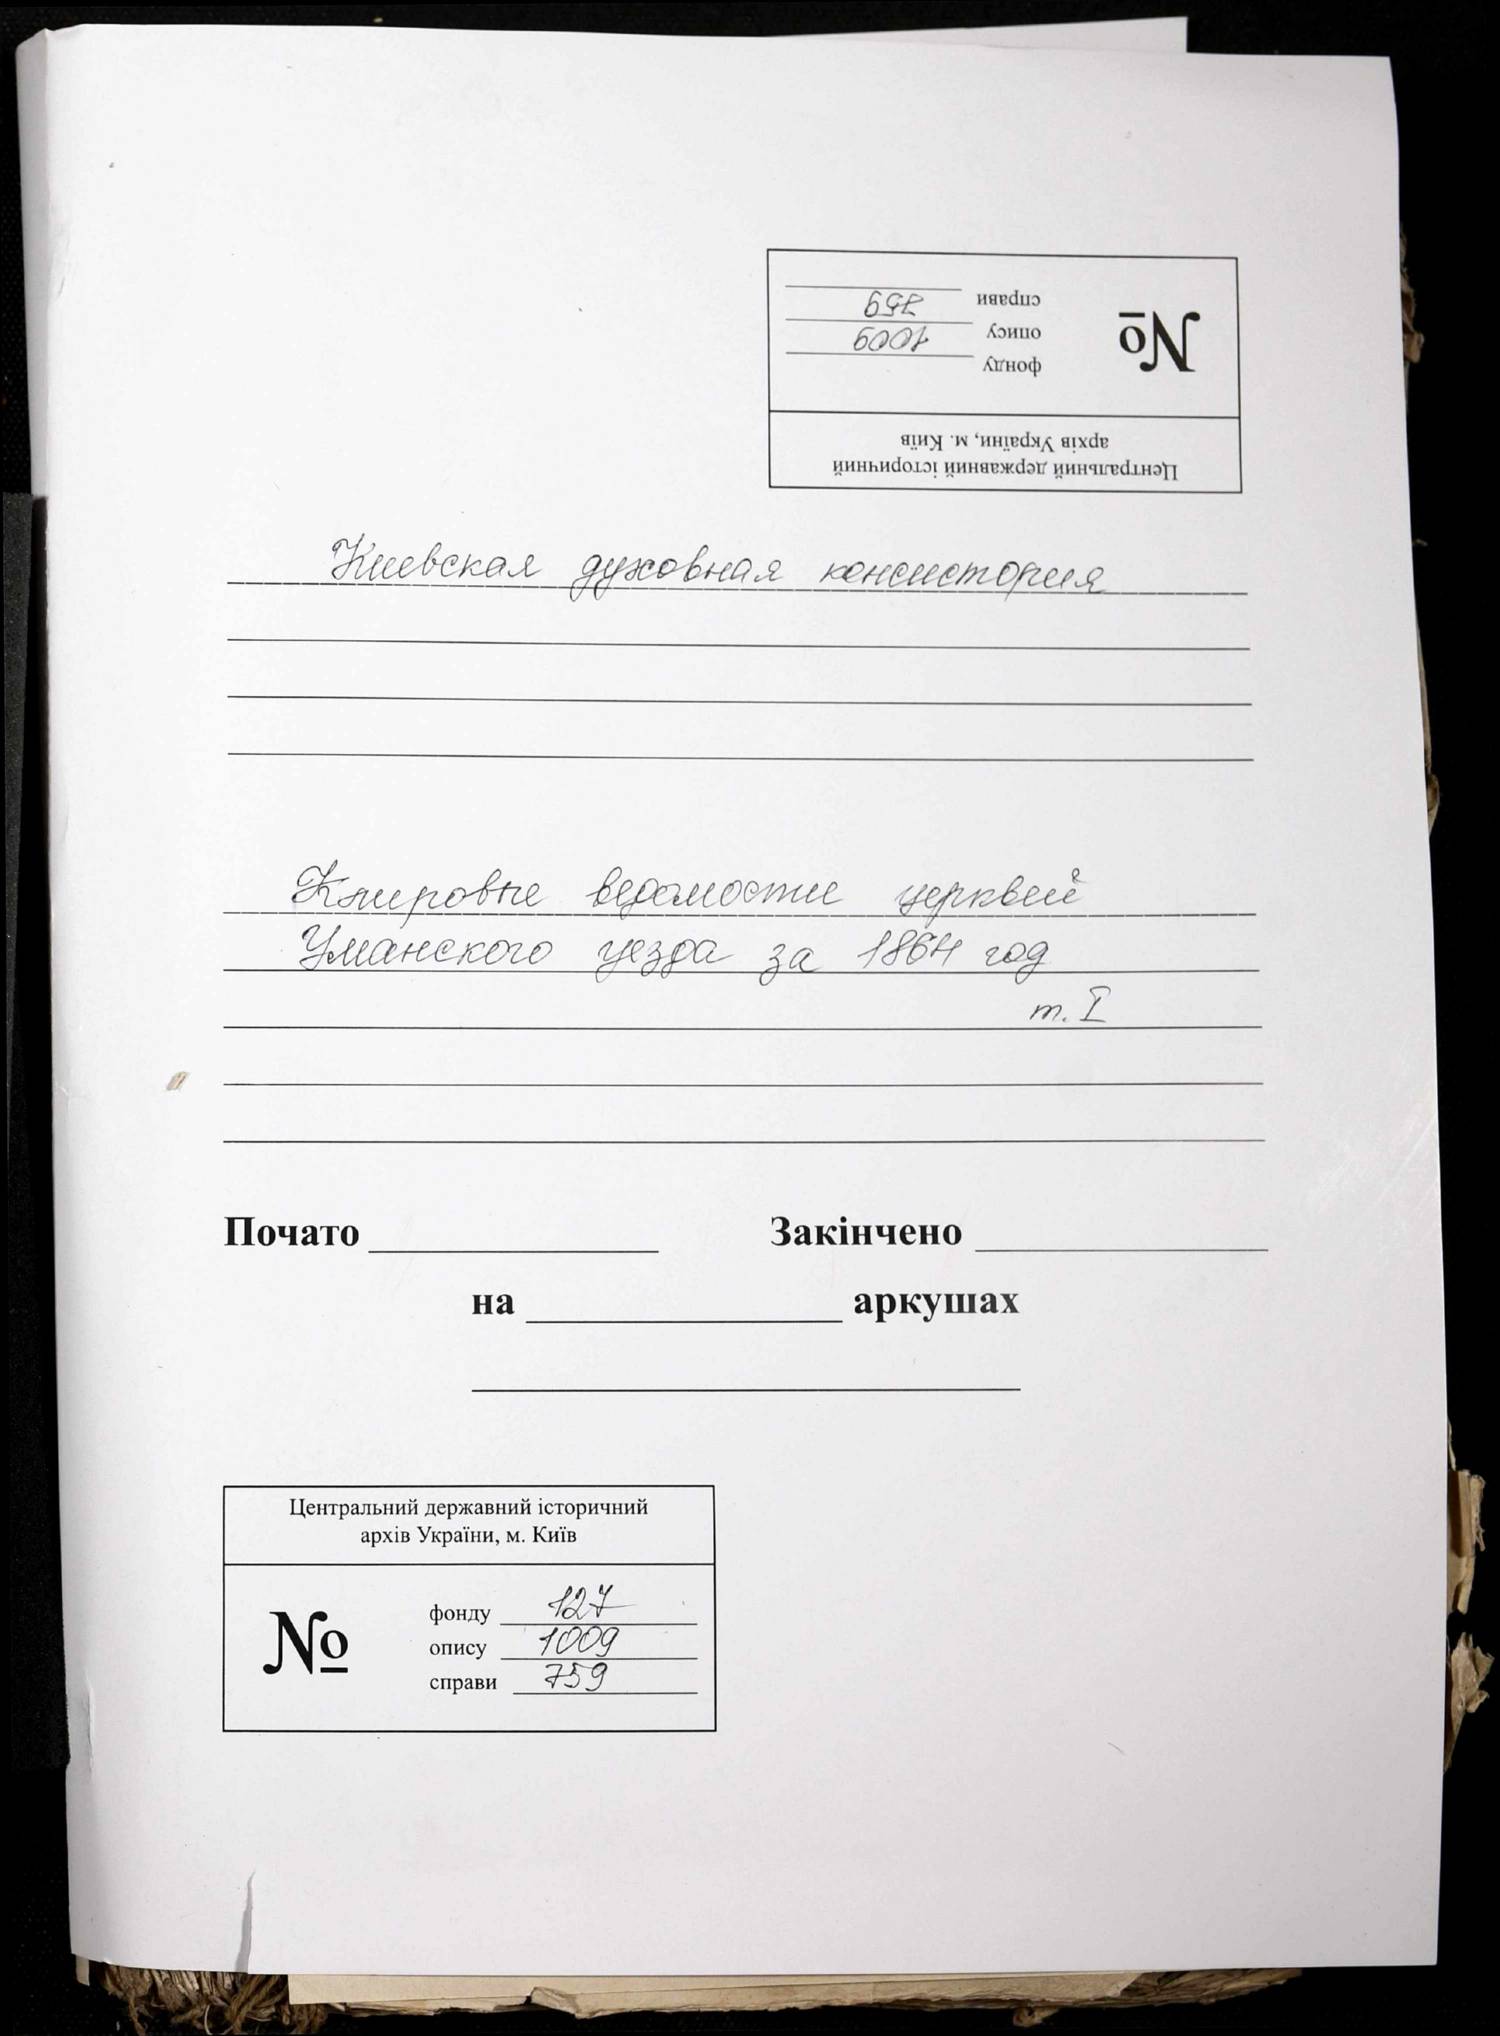 Центральний державний історичний
архів України, м. Київ
№
фонду
опису 1009
справи 759
Киевская духовная консистория
Клировые ведомости церквей
Уманского уезда за 1864 год
т. I
Почато Закінчено
на аркушах
Центральний державний історичний
архів України, м. Київ
№
фонду 127
опису 1009
справи 759